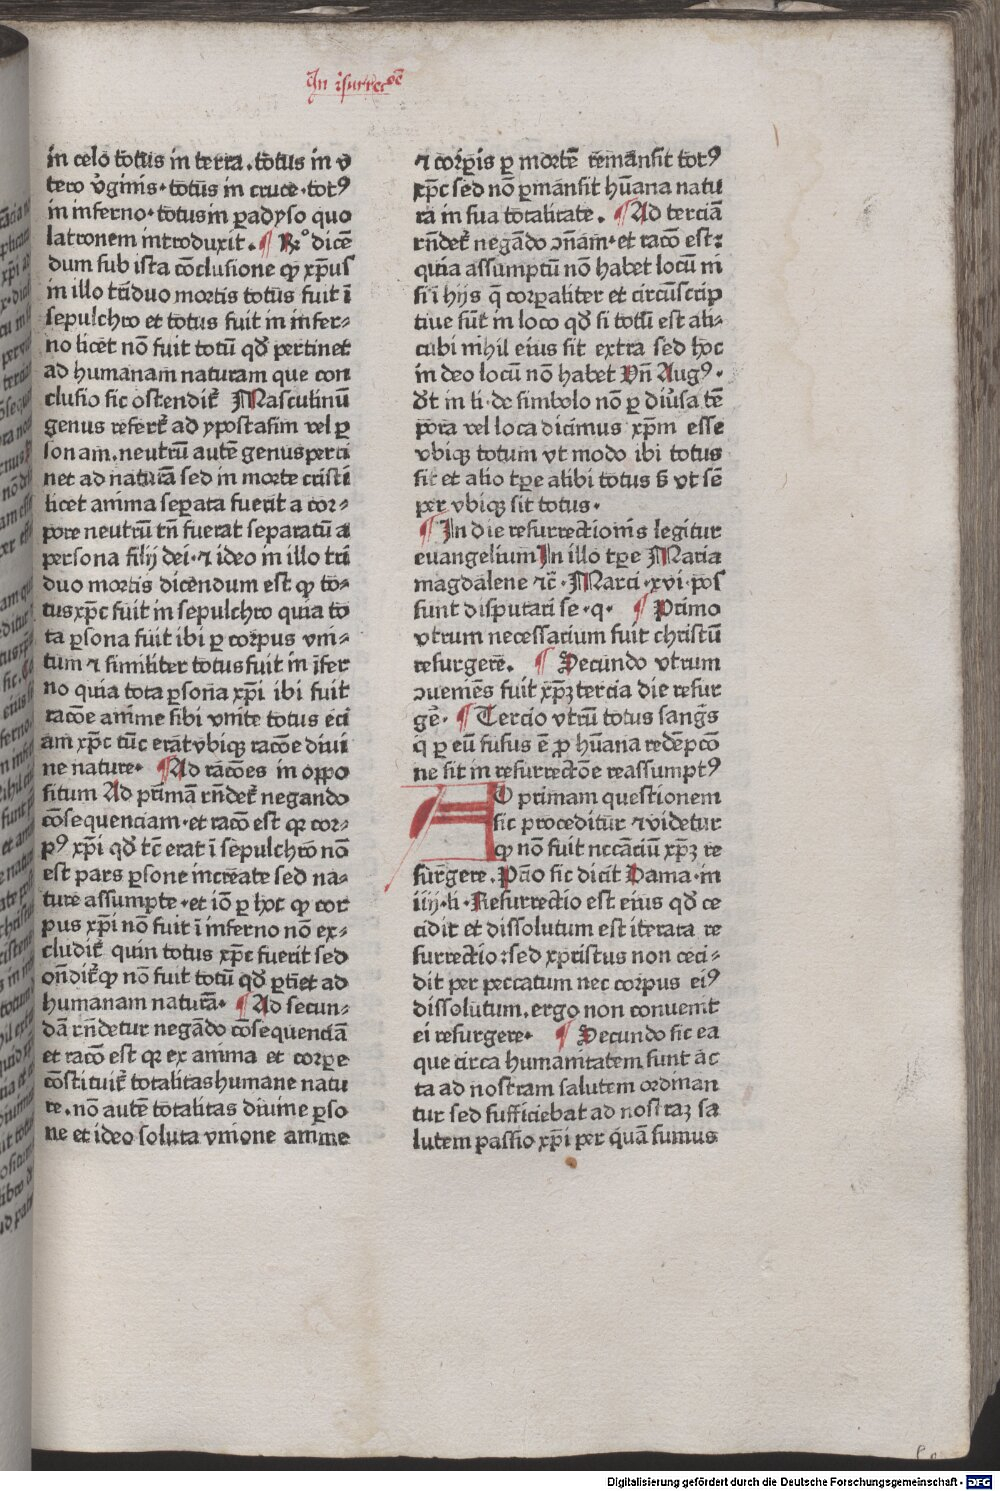 In resurrecōe
in celo totus in terra. totus in v
tero v̄ginis· totus in cruce· totꝰ
in inferno· totus in ꝑadyso quo
latronem introduxit. ¶ R̄ͦ dicē
dum sub ista cōclusione ꝙ xp̄us
in illo triduo mortis totus fuit ī
sepulchro et totus fuit in infer⸗
no licet nō fuit totū qd̄ pertinet
ad humanam naturam que con
clusio sic ostendit᷑ Masculinū
genus refert᷑ ad ypostasim vel ꝑ
sonam. neutrū autē genus perti
net ad naturā sed in morte cristi
licet anima seꝑata fuerit a cor⸗
pore neutrū tn̄ fuerat separatū a
persona filij dei· ⁊ ideo in illo tri
duo mortis dicendum est ꝙ to⸗
tus xp̄c fuit in sepulchro quia to
ta ꝑsona fuit ibi ꝑ corpus vni⸗
tum ⁊ similiter totus fuit in īfer
no quia tota ꝑsona xp̄i ibi fuit
racōe anime sibi vnite totus eci
am xp̄c tūc erat vbiqꝫ racōe diui
ne nature· ¶ Ad racōes in oppo
situm Ad primā rn̄det᷑ negando
cōsequenciam· et racō est qꝛ cor⸗
pꝰ xp̄i qd̄ tc̄ erat ī sepulchro nō
est pars ꝑsone increate sed na⸗
ture assumpte· et iō ꝑ hoc ꝙ cor
pus xp̄i nō fuit ī inferno nō ex⸗
cludit᷑ quin totus xp̄c fuerit sed
on̄dit᷑ ꝙ nō fuit totū qd̄ ꝑtīet ad
humanam naturā· ¶ Ad secun⸗
dā rn̄detur negādo cōsequenciā
et racō est qꝛ ex anima et corꝑe
cōstituit᷑ totalitas humane natu
re. nō autē totalitas diuine ꝑso
ne et ideo soluta vnione anime
⁊ corꝑis ꝑ mortē remansit totꝰ
xp̄c sed nō ꝑmansit hūana natu
ra in sua totalitate. ¶ Ad terciā
rn̄det᷑ negādo ↄn̄am· et racō est:
quia assumptū nō habet locū ni
si ī hijs q̄ corꝑaliter et circūscrip
tiue sūt in loco qd̄ si totū est ali⸗
cubi nihil eius sit extra sed hoc
in deo locū nō habet Vn̄ Augꝰ·
d̄t in li· de simbolo nō ꝑ diu̓sa tē
pora vel loca dicimus xp̄m esse
vbiqꝫ totum vt modo ibi totus
sit et alio tꝑe alibi totus s̄ vt sē
per vbiqꝫ sit totus·
¶ In die resurrectionis legitur
euangelium In illo tꝑe Maria
magdalene ⁊c̄· Marci· xvi· pos
sunt disputari se· q· ¶ Primo
vtrum necessarium fuit christū
resurgere. ¶ Secundo vtrum
ↄueniēs fuit xp̄ꝫ tercia die resur
gē· ¶ Tercio vtrū totus sang̓s
q̓ ꝑ eū fusus ē ꝓ hūana redēpcō
ne sit in resurrectōe reassumptꝰ
AD primam questionem
sic proceditur ⁊ videtur
ꝙ nō fuit nccāriū xp̄ꝫ re
surgere. Pīo sic dicit Dama· in
iiij· li· Resurrectio est eius qd̄ ce
cidit et dissolutum est iterata re
surrectio: sed xpristus non ceci⸗
dit per peccatum nec corpus eiꝰ
dissolutum. ergo non conuenit
ei resurgere· ¶ Secundo sic ea
que circa humanitatem sunt āc
ta ad nostram salutem ordinan
tur sed sufficiebat ad nostraꝫ sa
lutem passio xp̄i per quā sumus
Digitalisierung gefördert durch die Deutsche Forschungsgemeinschaft - DFG